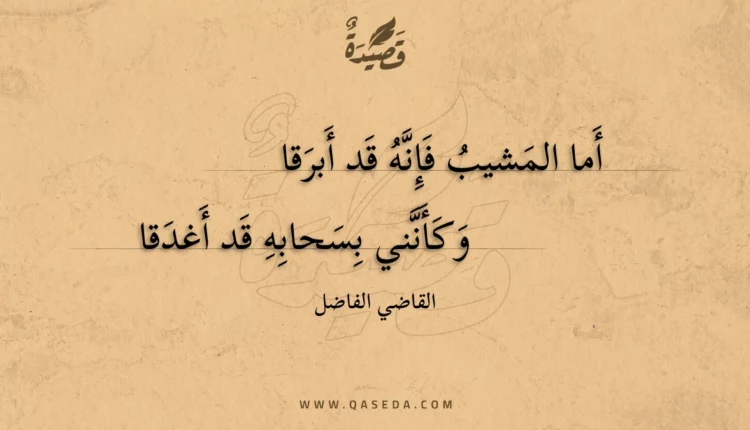 قَصِيْدَةٌ
أَما المَشيبُ فَإِنَّهُ قَد أَبرَقا
وَكَأَنَّني بِسَحابِهِ قَد أَغدَقا
القاضي الفاضل
WWW.QASEDA.COM